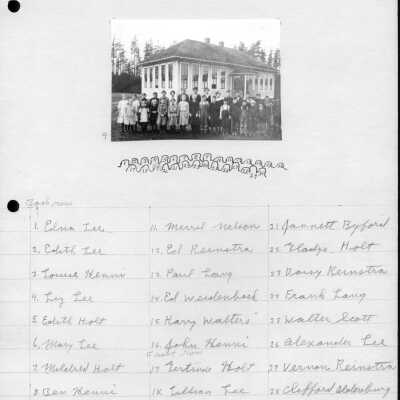 9
Back row
1. Edna Lee
2. Edith Lee
3. Louise Henni
4. Lg Lee
5. Edith Holt
6. May Lee
7. Mildred Holt
8. Ben Henni
11. Merril Nelson
12. Ed Rernstra
13. Paul Lang
14. Ed Weidenbach
15. Harry Walters
16. John Henni
Front row
17. Gertrude Holt
18. Lillian Lee
21. Jannett Byford
22. Gladys Holt
23. Daisy Rernstra
24. Frank Lang
25. Walter Scott
26. Alexander Lee
27. Vernon Rernstra
28. Clifford